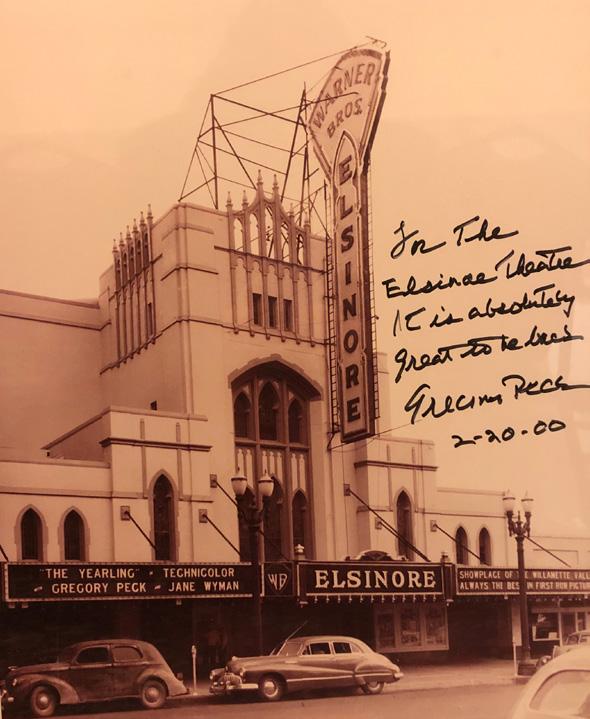 WARNER
BROS.
ELSINORE
For The
Elsinore Theatre
It is absolutely
great to be back
Gregory Peck
2-20-00
"THE YEARLING" - TECHNICOLOR
- GREGORY PECK - JANE WYMAN
WB
ELSINORE
SHOWPLACE OF THE WILLAMETTE VALL
ALWAYS THE BEST IN FIRST RUN PICTUR